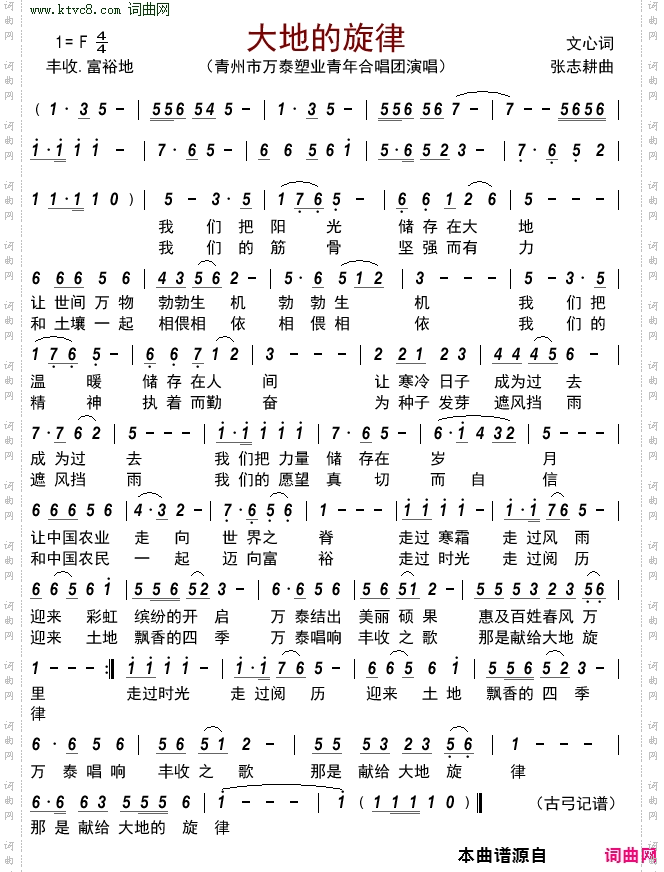 www.ktvc8.com 词曲网
大地的旋律
1= F 4/4
文心词
丰收.富裕地
（青州市万泰塑业青年合唱团演唱）
张志耕曲
( 1· 3 5 - | 5 5 6 5 4 5 - | 5 5 6 5 6 7 - | 7 - - 5 6 5 6 |
1· 1 1 1 - | 7· 6 5 - | 6 6 5 6 1 | 5· 6 5 2 3 - | 7· 6 5 2 |
1 1· 1 1 1 0 ) | 5 - 3· 5 | 1 7 6 5 - | 6 6 1 2 6 | 5 - - - |
我 们 把 阳 光 储 存 在 大 地
我 们 的 筋 骨 坚 强 而 有 力
6 6 6 5 5 6 | 4 3 5 6 2 - | 5· 6 5 1 2 | 3 - - - | 5 - 3· 5 |
让 世间 万 物 勃勃生 机 勃 勃 生 机 我 们 把
和 土壤 一 起 相偎相 依 相 偎 相 依 我 们 的
1 7 6 5 - | 6 6 7 1 2 | 3 - - - | 2 2 1 2 3 | 4 4 4 5 6 |
温 暖 储 存 在人 间 让 寒冷 日子 成为过 去
精 神 执 着 而勤 奋 为 种子 发芽 遮风挡 雨
7· 7 6 2 | 5 - - - | 1· 1 1 1 1 | 7· 6 5 5 | 6· 1 4 3 2 | 5 - - - |
成 为过 去 我 们把 力量 储 存在 岁 月
遮 风挡 雨 我 们的 愿望 真 切 而 自 信
6 6 6 5 6 | 4· 3 2 - | 7· 6 5 6 | 1 - - - | 1 1 1 1 | 1· 1 7 6 5 |
让中国农业 走 向 世 界之 脊 走过 寒霜 走 过风 雨
和中国农民 一 起 迈 向富 裕 走过 时光 走 过阅 历
6 6 5 6 1 | 5 5 5 5 5 2 - | 6· 6 5 6 | 5 6 5 2 | 5 5 5 3 2 3 5 6 |
迎来 彩虹 缤纷的开 启 万 泰结出 美丽 硕 果 惠及百姓春风 万
迎来 土地 飘香的四 季 万 泰唱响 丰收 之 歌 那是献给大地 旋
1 - - - :‖ 1 1 1 1 | 1· 1 7 6 5 | 6 6 5 6 1 | 5 5 5 6 5 2 |
里 走过时光 走 过阅 历 迎来 土 地 飘香的 四 季
律
6· 6 5 6 | 5 6 5 1 2 - | 5 5 5 3 2 3 5 6 | 1 - - - |
万 泰 唱 响 丰收 之 歌 那是 献给 大地 旋 律
6· 6 6 3 | 5 5 5 6 | 1 - - - | 1 ( 1 1 1 1 1 ) ‖
（古弓记谱）
那 是 献给 大地的 旋 律
本曲谱源自 词曲网